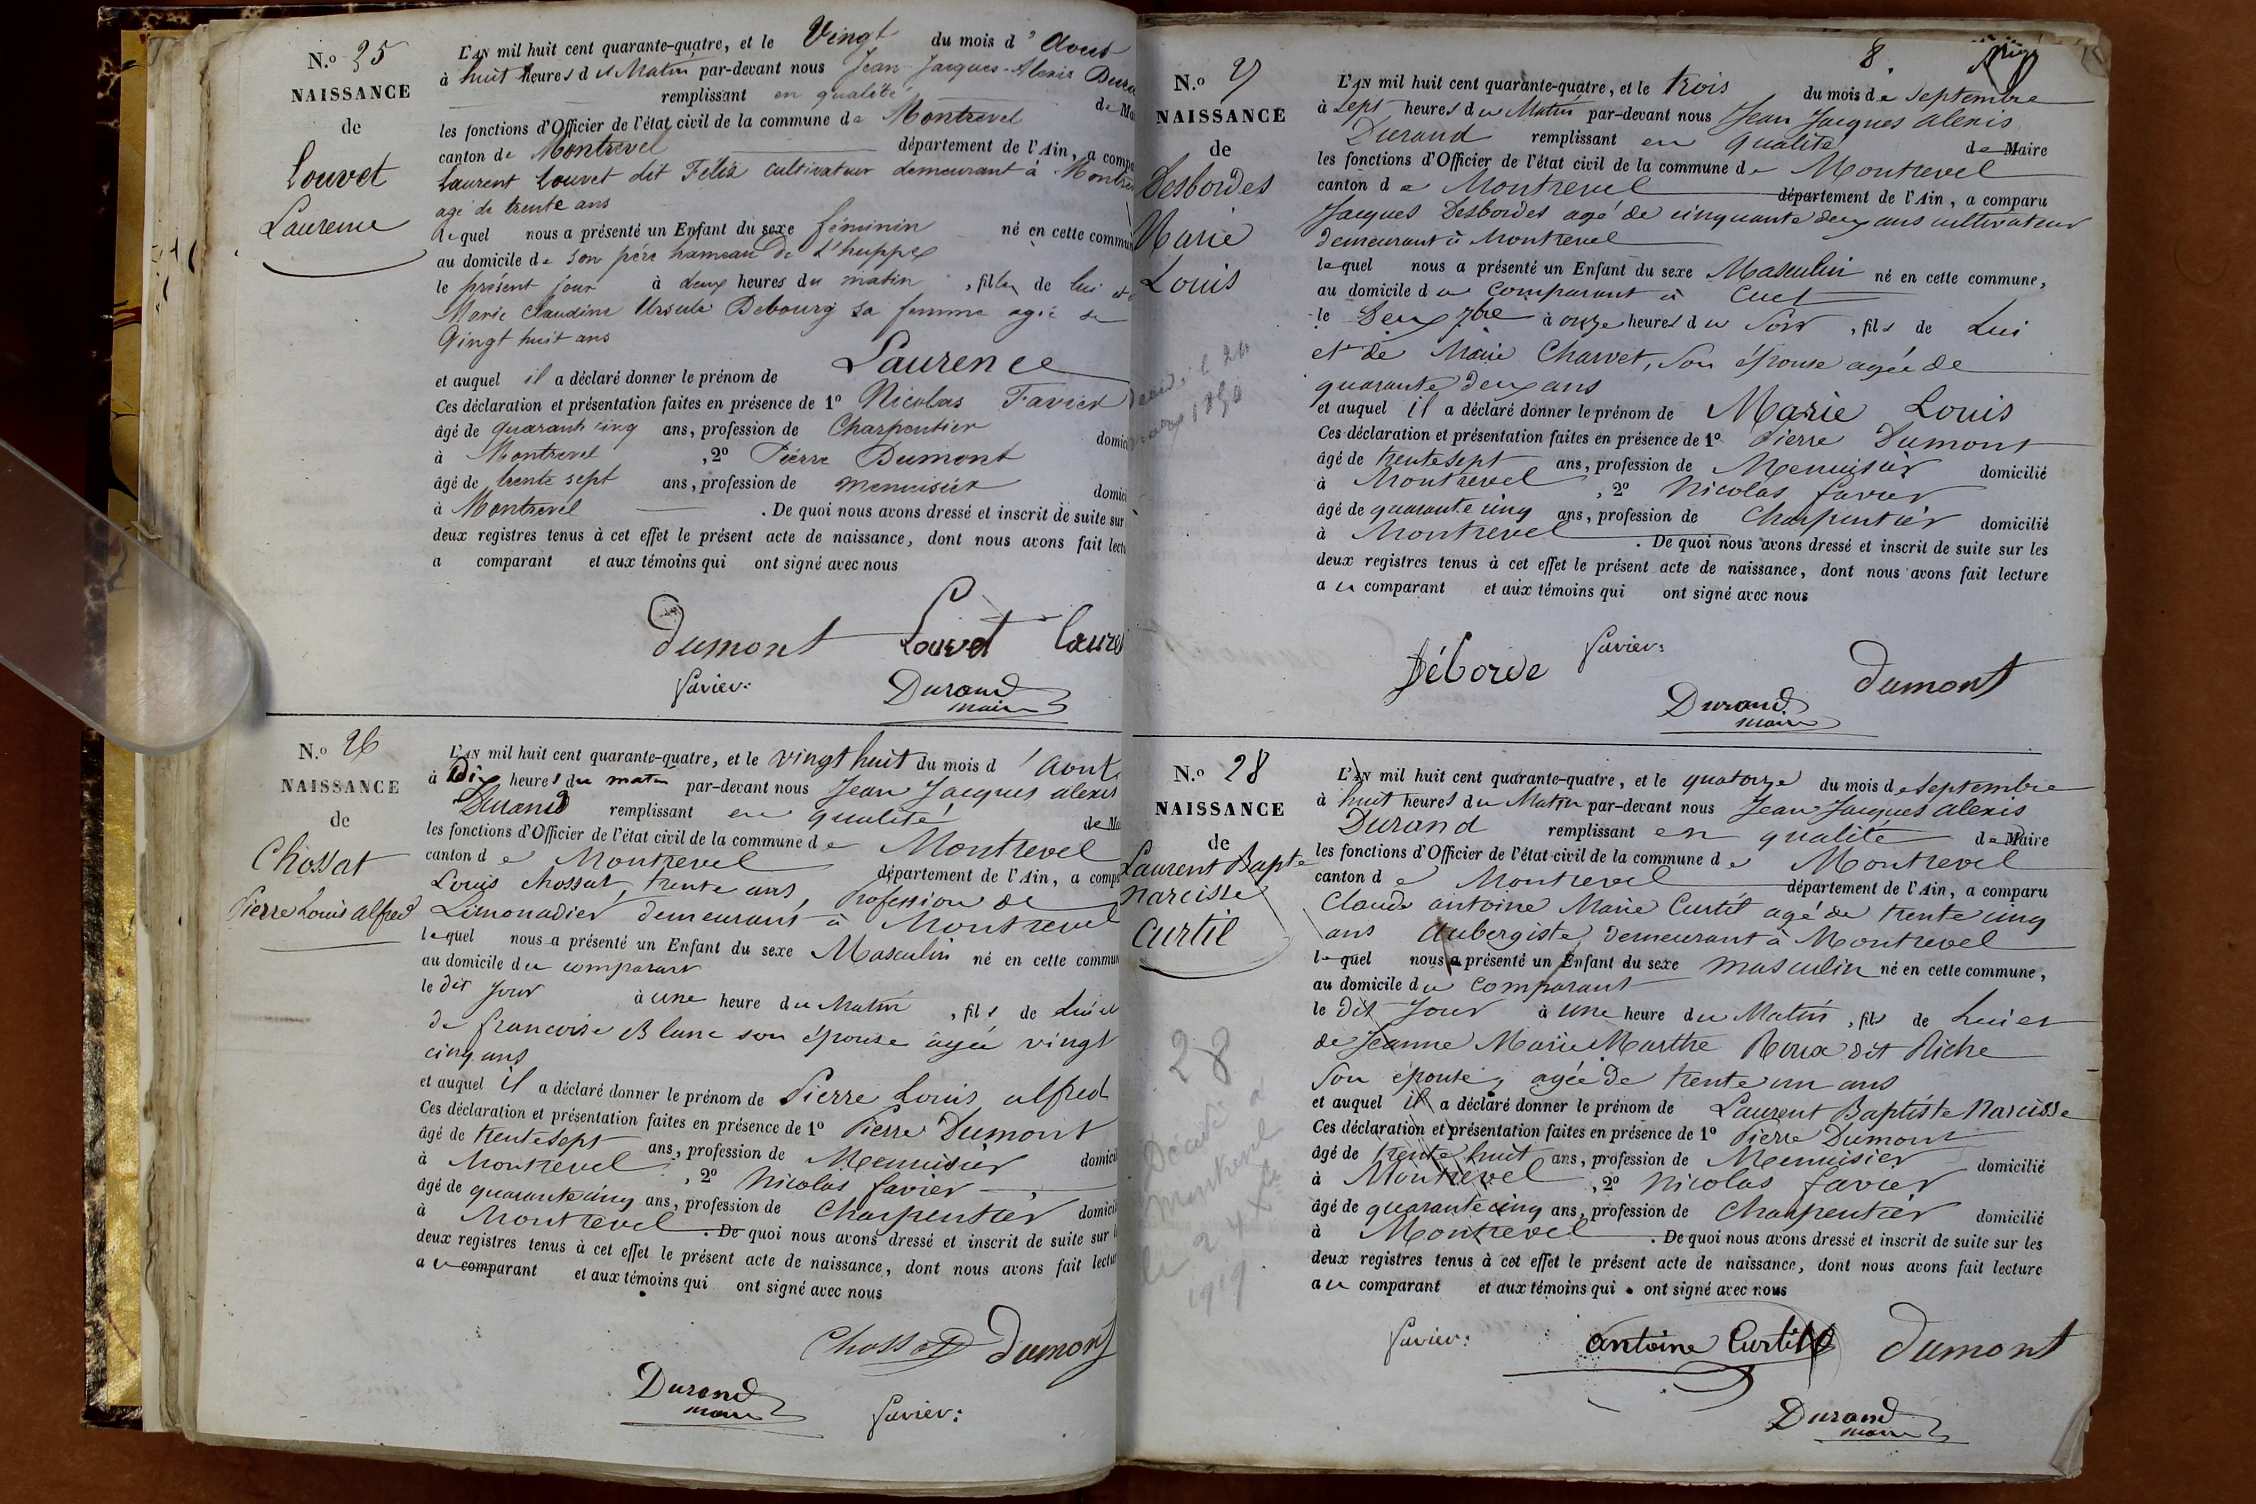 N.o 25
NAISSANCE
de
Louvet
Laurence
L'AN mil huit cent quarante-quatre, et le Vingt du mois d'Aout
à huit heures du Matin par-devant nous Jean Jacques-Alexis
remplissant en qualité de
les fonctions d'Officier de l'état civil de la commune de Montrevel
canton de Montrevel département de l'Ain, a
Laurent Louvet dit Félix cultivateur demeurant à
agé de trente ans
lequel nous a présenté un Enfant du sexe féminin né en cette
au domicile de son père hameau de L'huppe
le présent jour à deux heures du matin, fille de lui et
Marie Claudine Ursule Debourg sa femme agée de
Vingt huit ans
et auquel il a déclaré donner le prénom de Laurence
Ces déclaration et présentation faites en présence de 1o Nicolas Favier
âgé de quarante cinq ans, profession de Charpentier
à Montrevel, 2o Pierre Dumont
âgé de trente sept ans, profession de menuisier
à Montrevel . De quoi nous avons dressé et inscrit de suite sur
deux registres tenus à cet effet le présent acte de naissance, dont nous avons fait
a comparant et aux témoins qui ont signé avec nous
Dumont Louvet
favier: Durand
maire
N.o 26
NAISSANCE
de
Chossat
Pierre Louis alfred
L'AN mil huit cent quarante-quatre, et le vingt huit du mois d'Aout
à Dix heures du matin par-devant nous Jean Jacques alexis
Durand remplissant en qualité de
les fonctions d'Officier de l'état civil de la commune de Montrevel
canton de Montrevel département de l'Ain, a
Louis Chossat, trente ans, Profession de
Limonadier demeurant à Montrevel
lequel nous a présenté un Enfant du sexe Masculin né en cette
au domicile du comparant
le dit Jour à une heure du Matin, fils de Lui et
de francoise Blanc son épouse agée vingt
cinq ans
et auquel il a déclaré donner le prénom de Pierre Louis alfred
Ces déclaration et présentation faites en présence de 1o Pierre Dumont
âgé de trente sept ans, profession de Menuisier
à Montrevel, 2o Nicolas favier
âgé de quarante cinq ans, profession de Charpentier
à Montrevel . De quoi nous avons dressé et inscrit de suite sur
deux registres tenus à cet effet le présent acte de naissance, dont nous avons fait
au comparant et aux témoins qui ont signé avec nous
Chossat Dumont
Durand
maire favier:
8.
N.o 27
NAISSANCE
de
Desbordes
Marie
Louis
L'AN mil huit cent quarante-quatre, et le trois du mois de septembre
à Sept heures du Matin par-devant nous Jean Jacques alexis
Durand remplissant en qualité de Maire
les fonctions d'Officier de l'état civil de la commune de Montrevel
canton de Montrevel département de l'Ain, a comparu
Jacques Desbordes agé de cinquante deux ans cultivateur
demeurant à Montrevel
lequel nous a présenté un Enfant du sexe Masculin né en cette commune,
au domicile du Comparant à Cuet
le Deux 7bre à onze heures du Soir, fils de Lui
et de Marie Charvet, Son épouse agée de
quarante deux ans
et auquel il a déclaré donner le prénom de Marie Louis
Ces déclaration et présentation faites en présence de 1o Pierre Dumont
âgé de trente sept ans, profession de Menuisier domicilié
à Montrevel, 2o Nicolas favier
âgé de quarante cinq ans, profession de Charpentier domicilié
à Montrevel . De quoi nous avons dressé et inscrit de suite sur les
deux registres tenus à cet effet le présent acte de naissance, dont nous avons fait lecture
au comparant et aux témoins qui ont signé avec nous
Déborde favier: Dumont
Durand
maire
N.o 28
NAISSANCE
de
Laurent Bapte
narcisse
Curtil
28
Décédé à
Montrevel
le 24 Xbre
1919.
L'AN mil huit cent quarante-quatre, et le quatorze du mois de septembre
à huit heures du Matin par-devant nous Jean Jacques alexis
Durand remplissant en qualité de Maire
les fonctions d'Officier de l'état civil de la commune de Montrevel
canton de Montrevel département de l'Ain, a comparu
Claude antoine Marie Curtil agé de trente cinq
ans Aubergiste, demeurant à Montrevel
lequel nous a présenté un Enfant du sexe masculin né en cette commune,
au domicile du comparant
le dit Jour à une heure du Matin, fils de Lui et
de Jeanne Marie Marthe Roux dit Riche
Son épouse, agée de trente un ans
et auquel il a déclaré donner le prénom de Laurent Baptiste Narcisse
Ces déclaration et présentation faites en présence de 1o Pierre Dumont
âgé de trente huit ans, profession de Menuisier domicilié
à Montrevel, 2o Nicolas favier
âgé de quarante cinq ans, profession de Charpentier domicilié
à Montrevel . De quoi nous avons dressé et inscrit de suite sur les
deux registres tenus à cet effet le présent acte de naissance, dont nous avons fait lecture
au comparant et aux témoins qui ont signé avec nous
favier: antoine Curtil Dumont
Durand
maire